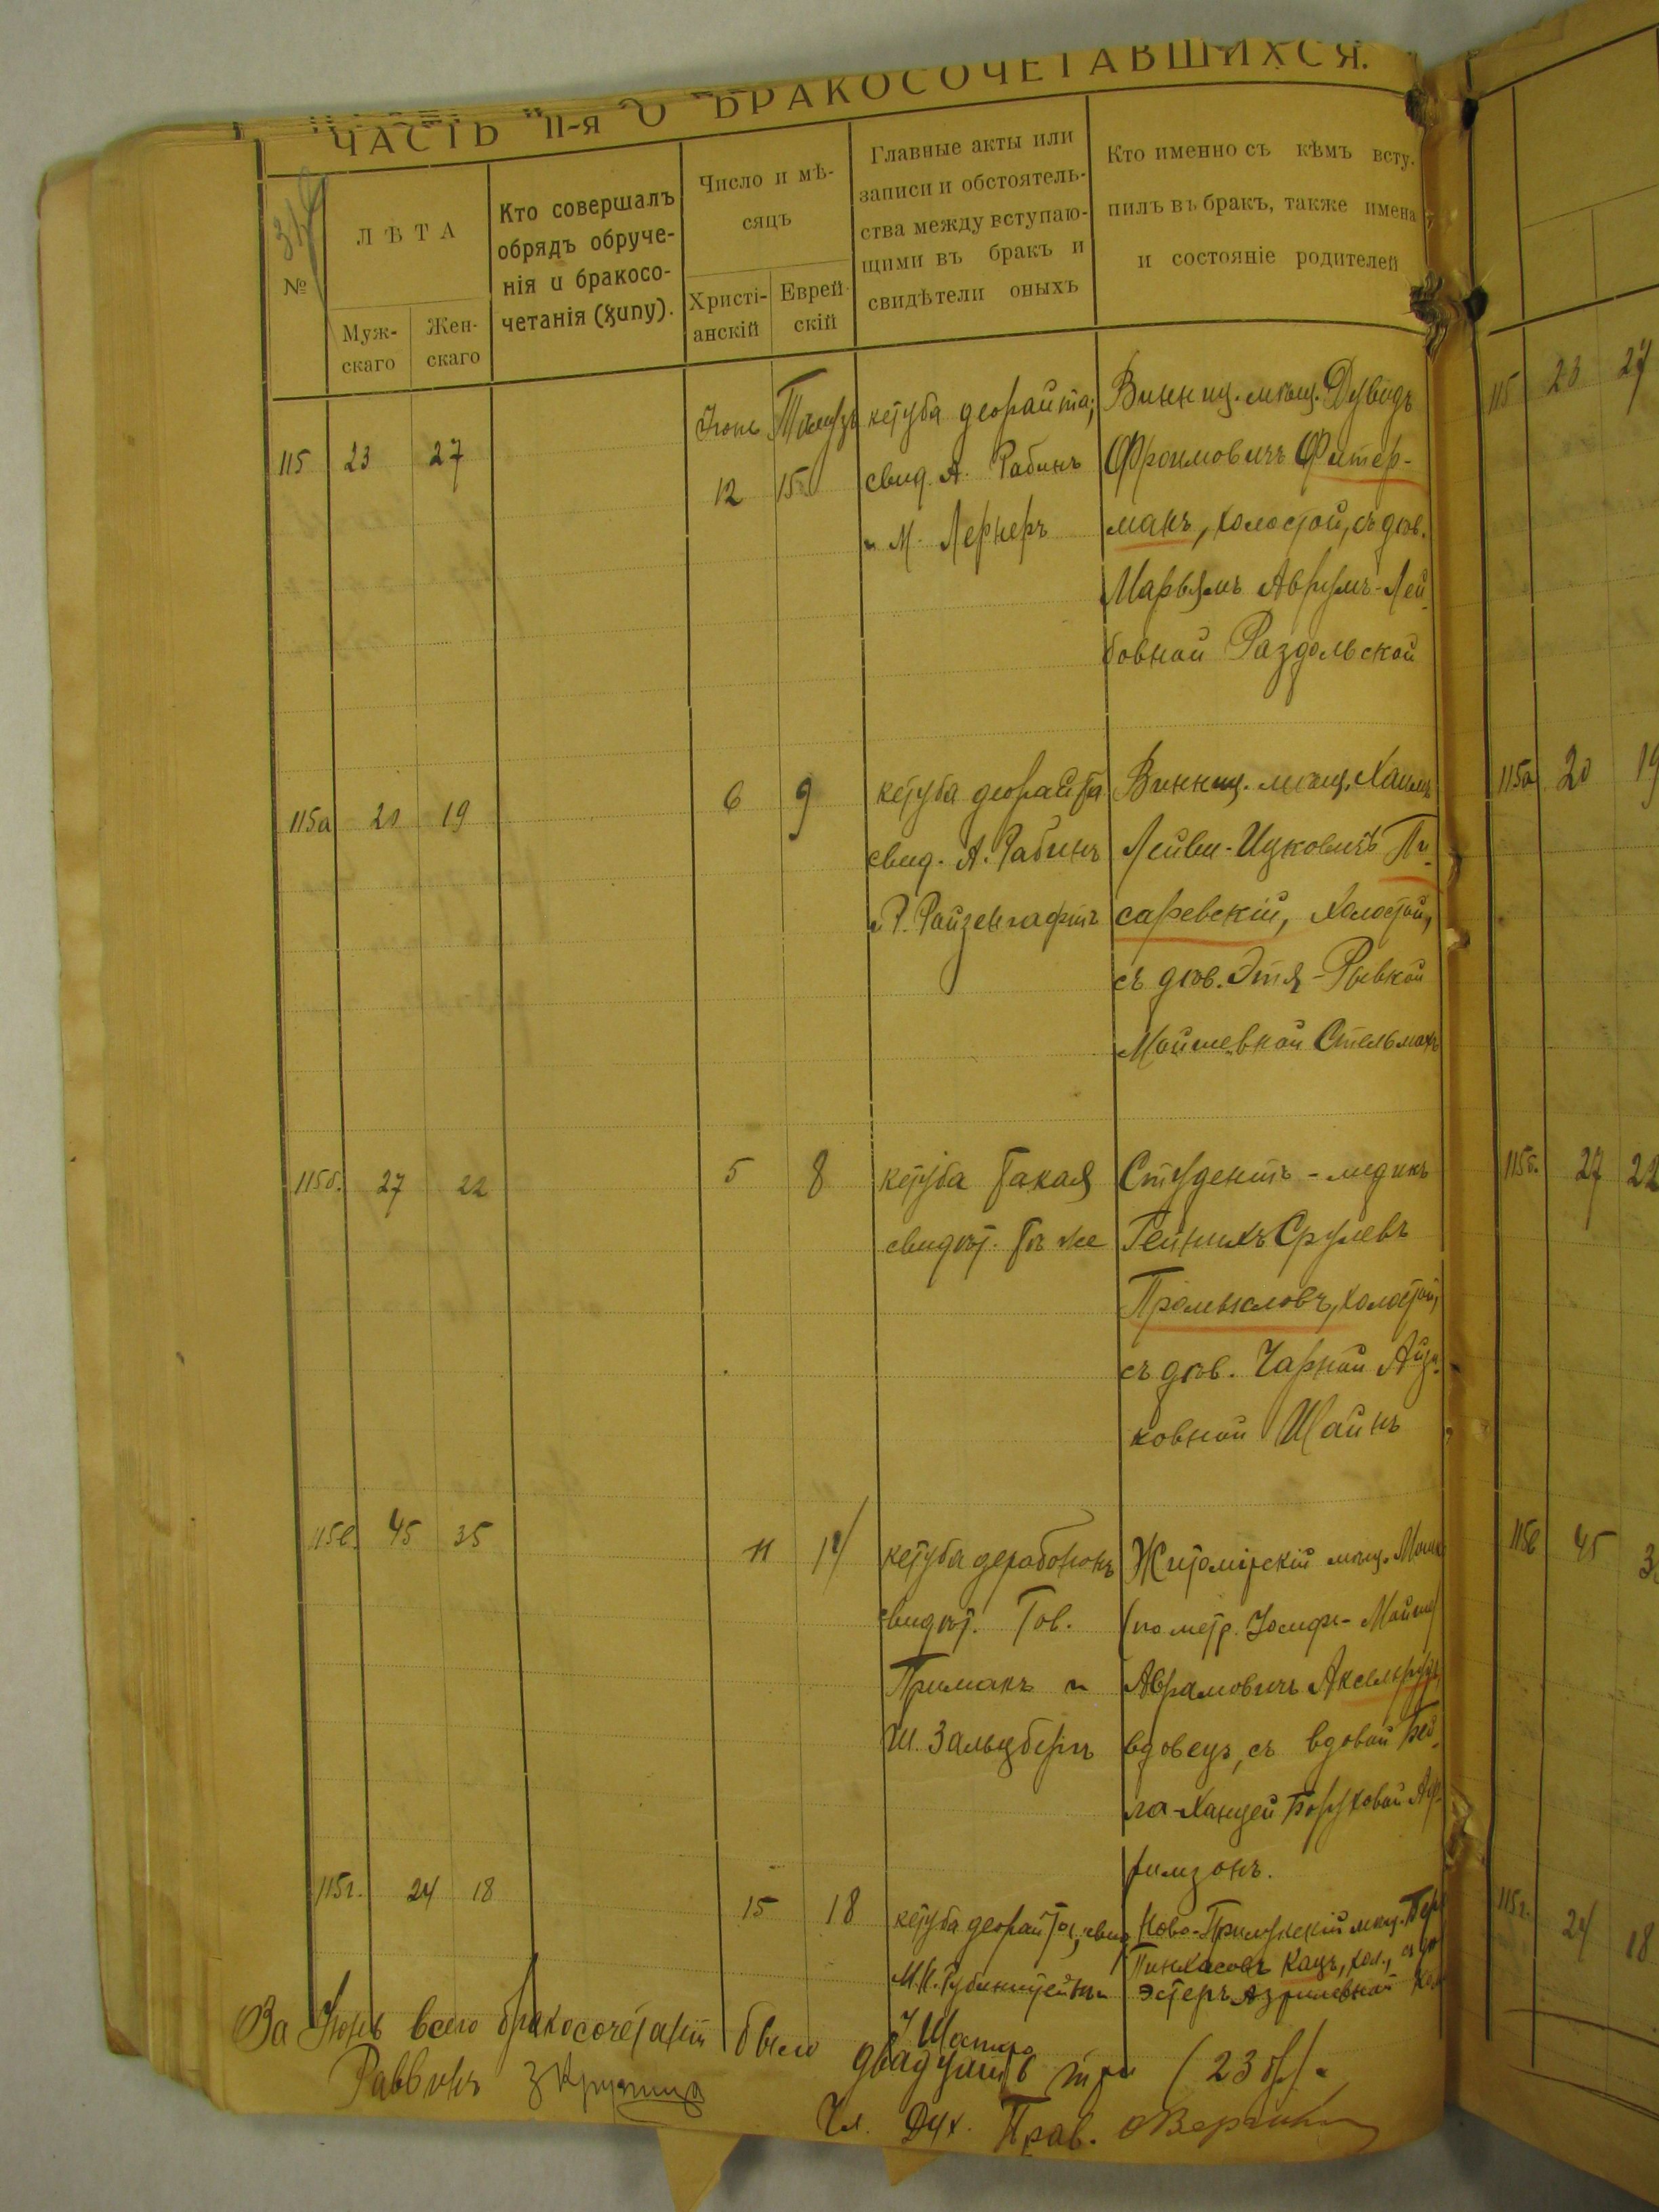 ЧАСТЬ II-я О БРАКОСОЧЕТАВШИХСЯ.
№
ЛѢТА
Муж-
скаго
Жен-
скаго
Кто совершалъ
обрядъ обруче-
нія и бракосо-
четанія (хупу).
Число и мѣ-
сяцъ
Христі-
анскій
Еврей-
скій
Главные акты или
записи и обстоятель-
ства между вступаю-
щими въ бракъ и
свидѣтели оныхъ
Кто именно съ кѣмъ всту-
пилъ въ бракъ, также имена
и состояніе родителей
115 23 27
Іюнь
12 15
кетуба деорайта;
свид. А. Рабинъ
и М. Лернеръ
Винниц. мѣщ. Дувидъ
Фроимовичъ Фитер-
манъ, холостой, съ дѣв.
Марьямъ Аврумъ-Лей-
бовной Раздольской
115а 20 19
6 9
кетуба деорайта
свид. А. Рабинъ
и Р. Райзенгафтъ
Винниц. мѣщ. Хаимъ
Лейви-Ицковичъ Пи-
саревскій, холостой,
съ дѣв. Этя-Рывкой
Мойшевной Стельмахъ
115б. 27 22
5 8
кетуба такая
свидѣт. тѣ же
Студентъ-медикъ
Гейнихъ Срулевъ
Промысловъ, холостой,
съ дѣв. Чарной Айзи-
ковной Шайнъ
115в. 45 35
11 14
кетуба дерабононъ
свидѣт. Тов.
Примакъ и
Ш. Зальцбергъ
Житомірскій мѣщ.
(по метр. Іосифъ-Мойше)
Аврамовичъ Аксельрудъ,
вдовецъ, съ вдовой Бей-
ла-Ханцей Боруховой
115г. 24 18
15 18
кетуба деорайта, свид
М.Н. Рубинштейнъ и
Шапиро
Ново-Прилукскій мѣщ. Бер
Пинхасовъ Кацъ, хол., съ дѣ
Эстеръ Азрилевной
За Іюнь всего бракосочетаній было двадцать три (23 бр).
Раввинъ
Чл. Дух. Прав.
115 23 27
115а 20 19
115б. 27 22
115в 45
115г. 24 18